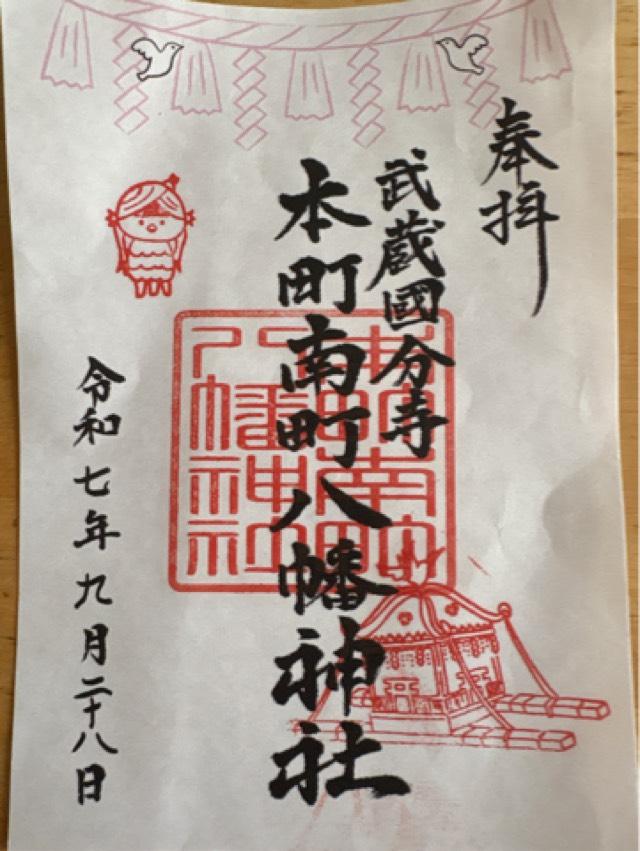 奉拝
武蔵國分寺
本町南町八幡神社
本町南町
八幡神社
令和七年九月二十八日